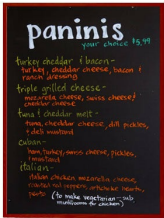 paninis
your choice $5.99
turkey cheddar & bacon -
turkey, cheddar cheese, bacon &
ranch dressing
triple grilled cheese -
mozzarella cheese, swiss cheese &
cheddar cheese
tuna & cheddar melt -
tuna, cheddar cheese, dill pickles,
& deli mustard
cuban -
ham, turkey, swiss cheese, pickles,
& mustard
italian -
italian chicken mozzarella cheese,
roasted red peppers, artichoke hearts,
pesto
(to make vegetarian - sub
mushrooms for chicken)